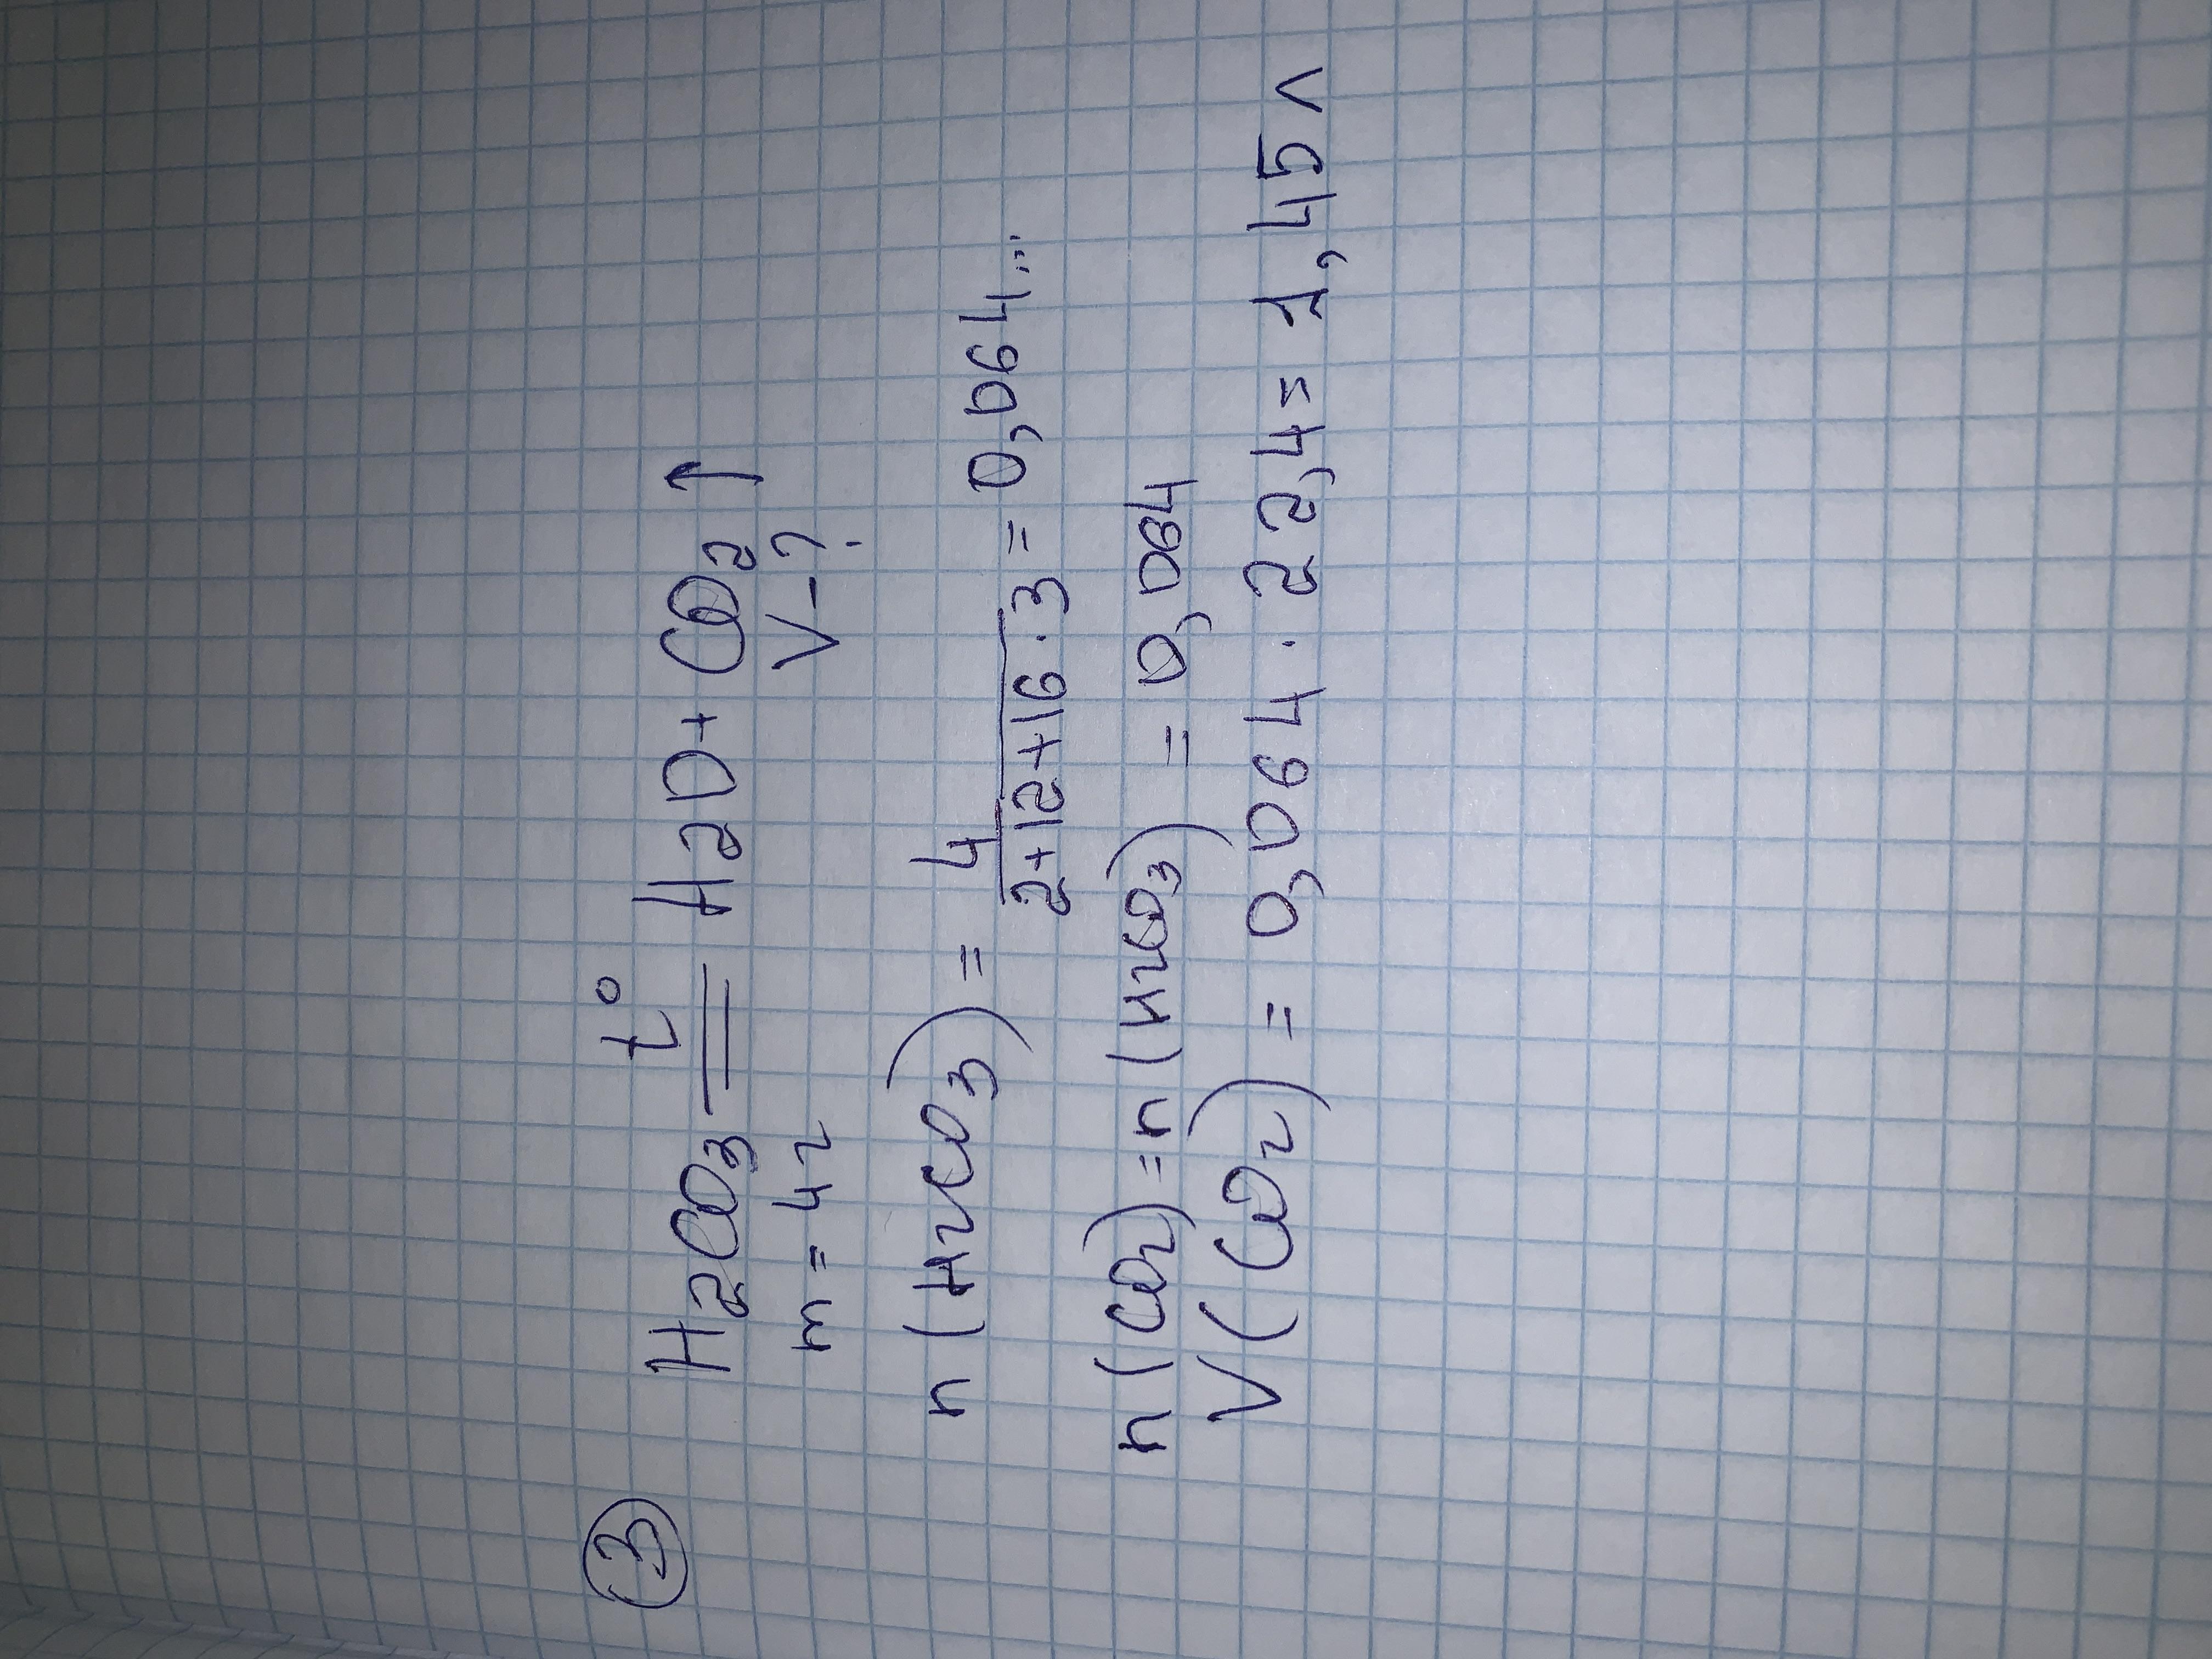 ③ H2CO3 =t°= H2O + CO2 ↑
m = 4г V-?
n (H2CO3) = 4 / 2+12+16·3 = 0,064...
n (CO2) = n (H2CO3) = 0,064
V (CO2) = 0,064 · 22,4 = 1,45 л